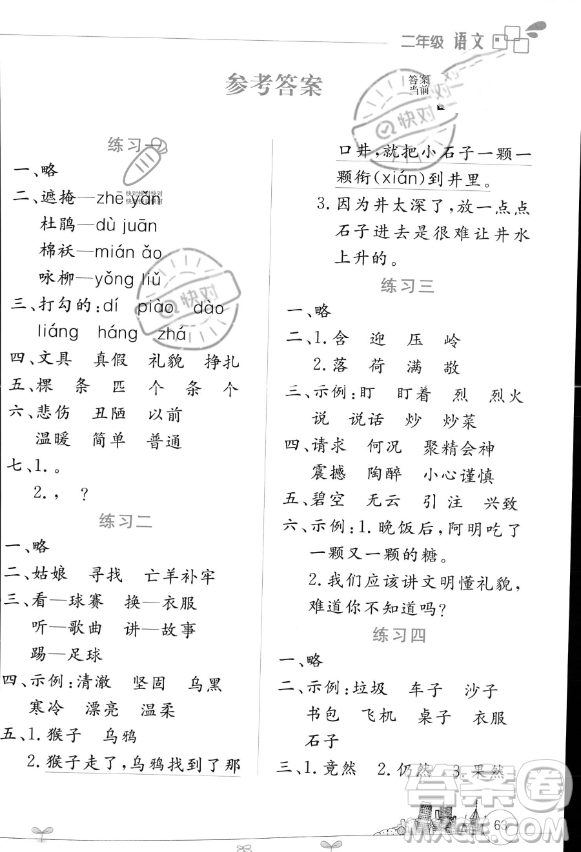 二年级 语文
参考答案
答案
当前
练习一
一、略
二、遮掩—zhē yǎn
杜鹃—dù juān
棉袄—mián ǎo
咏柳—yǒng liǔ
三、打勾的:dí piào dào
liáng háng zhá
四、文具 真假 礼貌 挣扎
五、棵 条 匹 个 条 个
六、悲伤 丑陋 以前
温暖 简单 普通
七、1.。
2., ?
练习二
一、略
二、姑娘 寻找 亡羊补牢
三、看—球赛 换—衣服
听—歌曲 讲—故事
踢—足球
四、示例:清澈 坚固 乌黑
寒冷 漂亮 温柔
五、1.猴子 乌鸦
2.猴子走了,乌鸦找到了那
口井,就把小石子一颗一
颗衔(xián)到井里。
3.因为井太深了,放一点点
石子进去是很难让井水
上升的。
练习三
一、略
二、1.含 迎 压 岭
2.落 荷 满 敬
三、示例:盯 盯着 烈 烈火
说 说话 炒 炒菜
四、请求 何况 聚精会神
震撼 陶醉 小心谨慎
五、碧空 无云 引注 兴致
六、示例:1.晚饭后,阿明吃了
一颗又一颗的糖。
2.我们应该讲文明懂礼貌,
难道你不知道吗?
练习四
一、略
二、示例:垃圾 车子 沙子
书包 飞机 桌子 衣服
石子
三、1.竟然 2.仍然 3.果然
快对
快对
答案圈